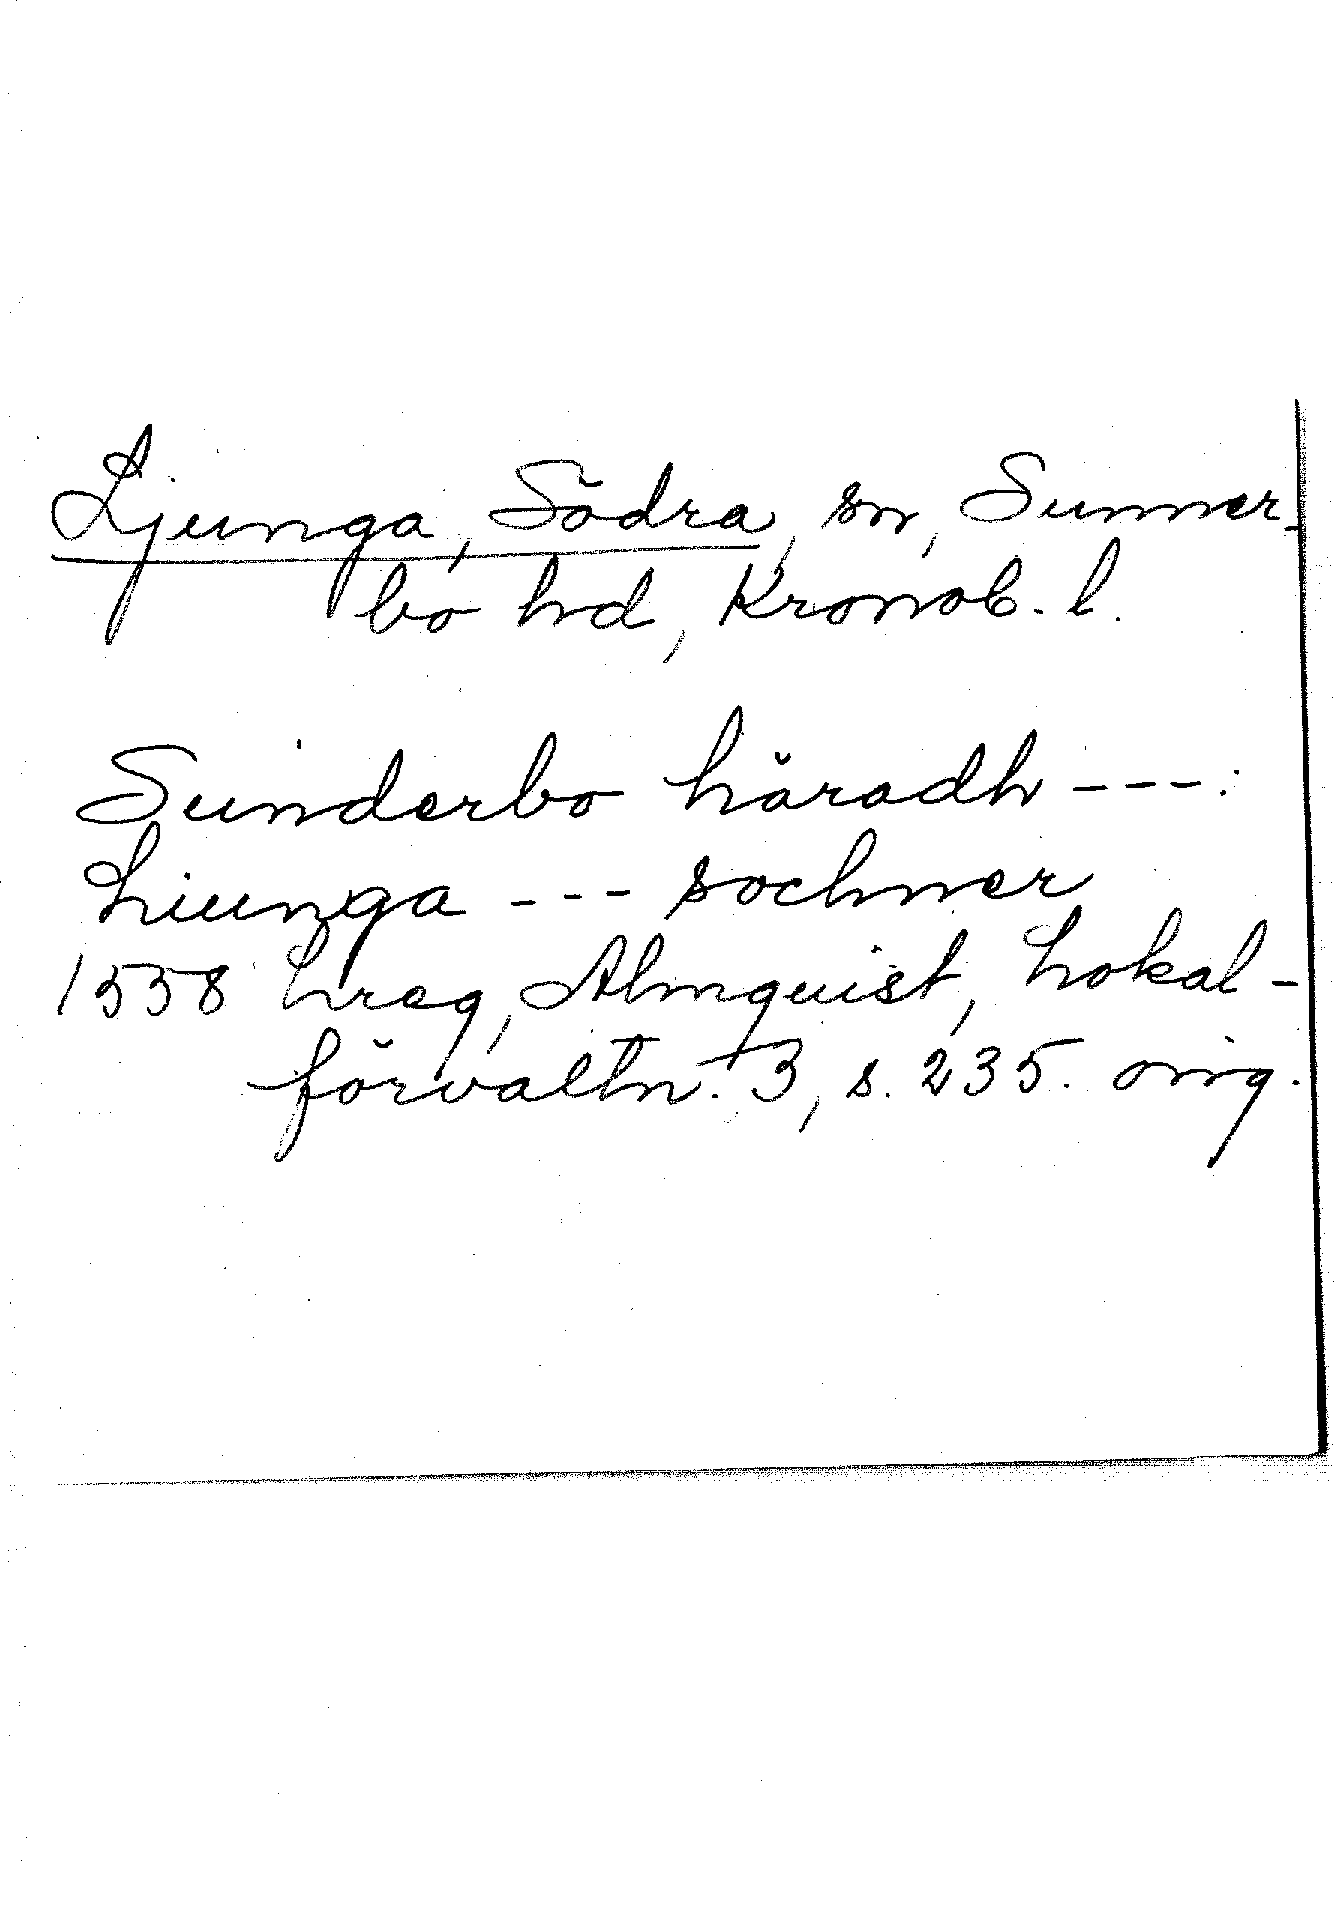 Ljunga, Södra, sn, Sunner-
bo hd, Kronob. l.
Sunderbo häradh ---:
Liunga --- sochner
1558 Lreg, Almquist, Lokal-
förvaltn. 3, s. 235. orig.